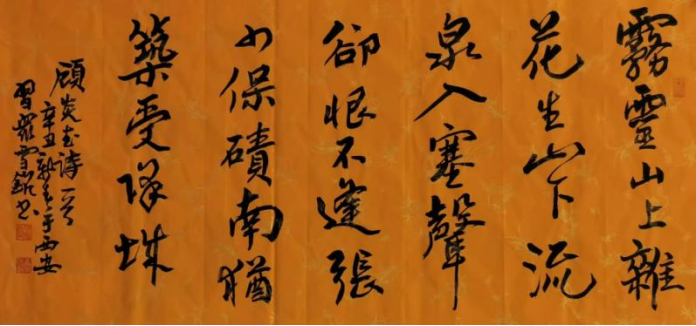 霧靈山上雜
花生山下流
泉入塞聲
卻恨不逢張
少保磧南猶
築受降城
顧炎武詩一首
辛丑于西安
書